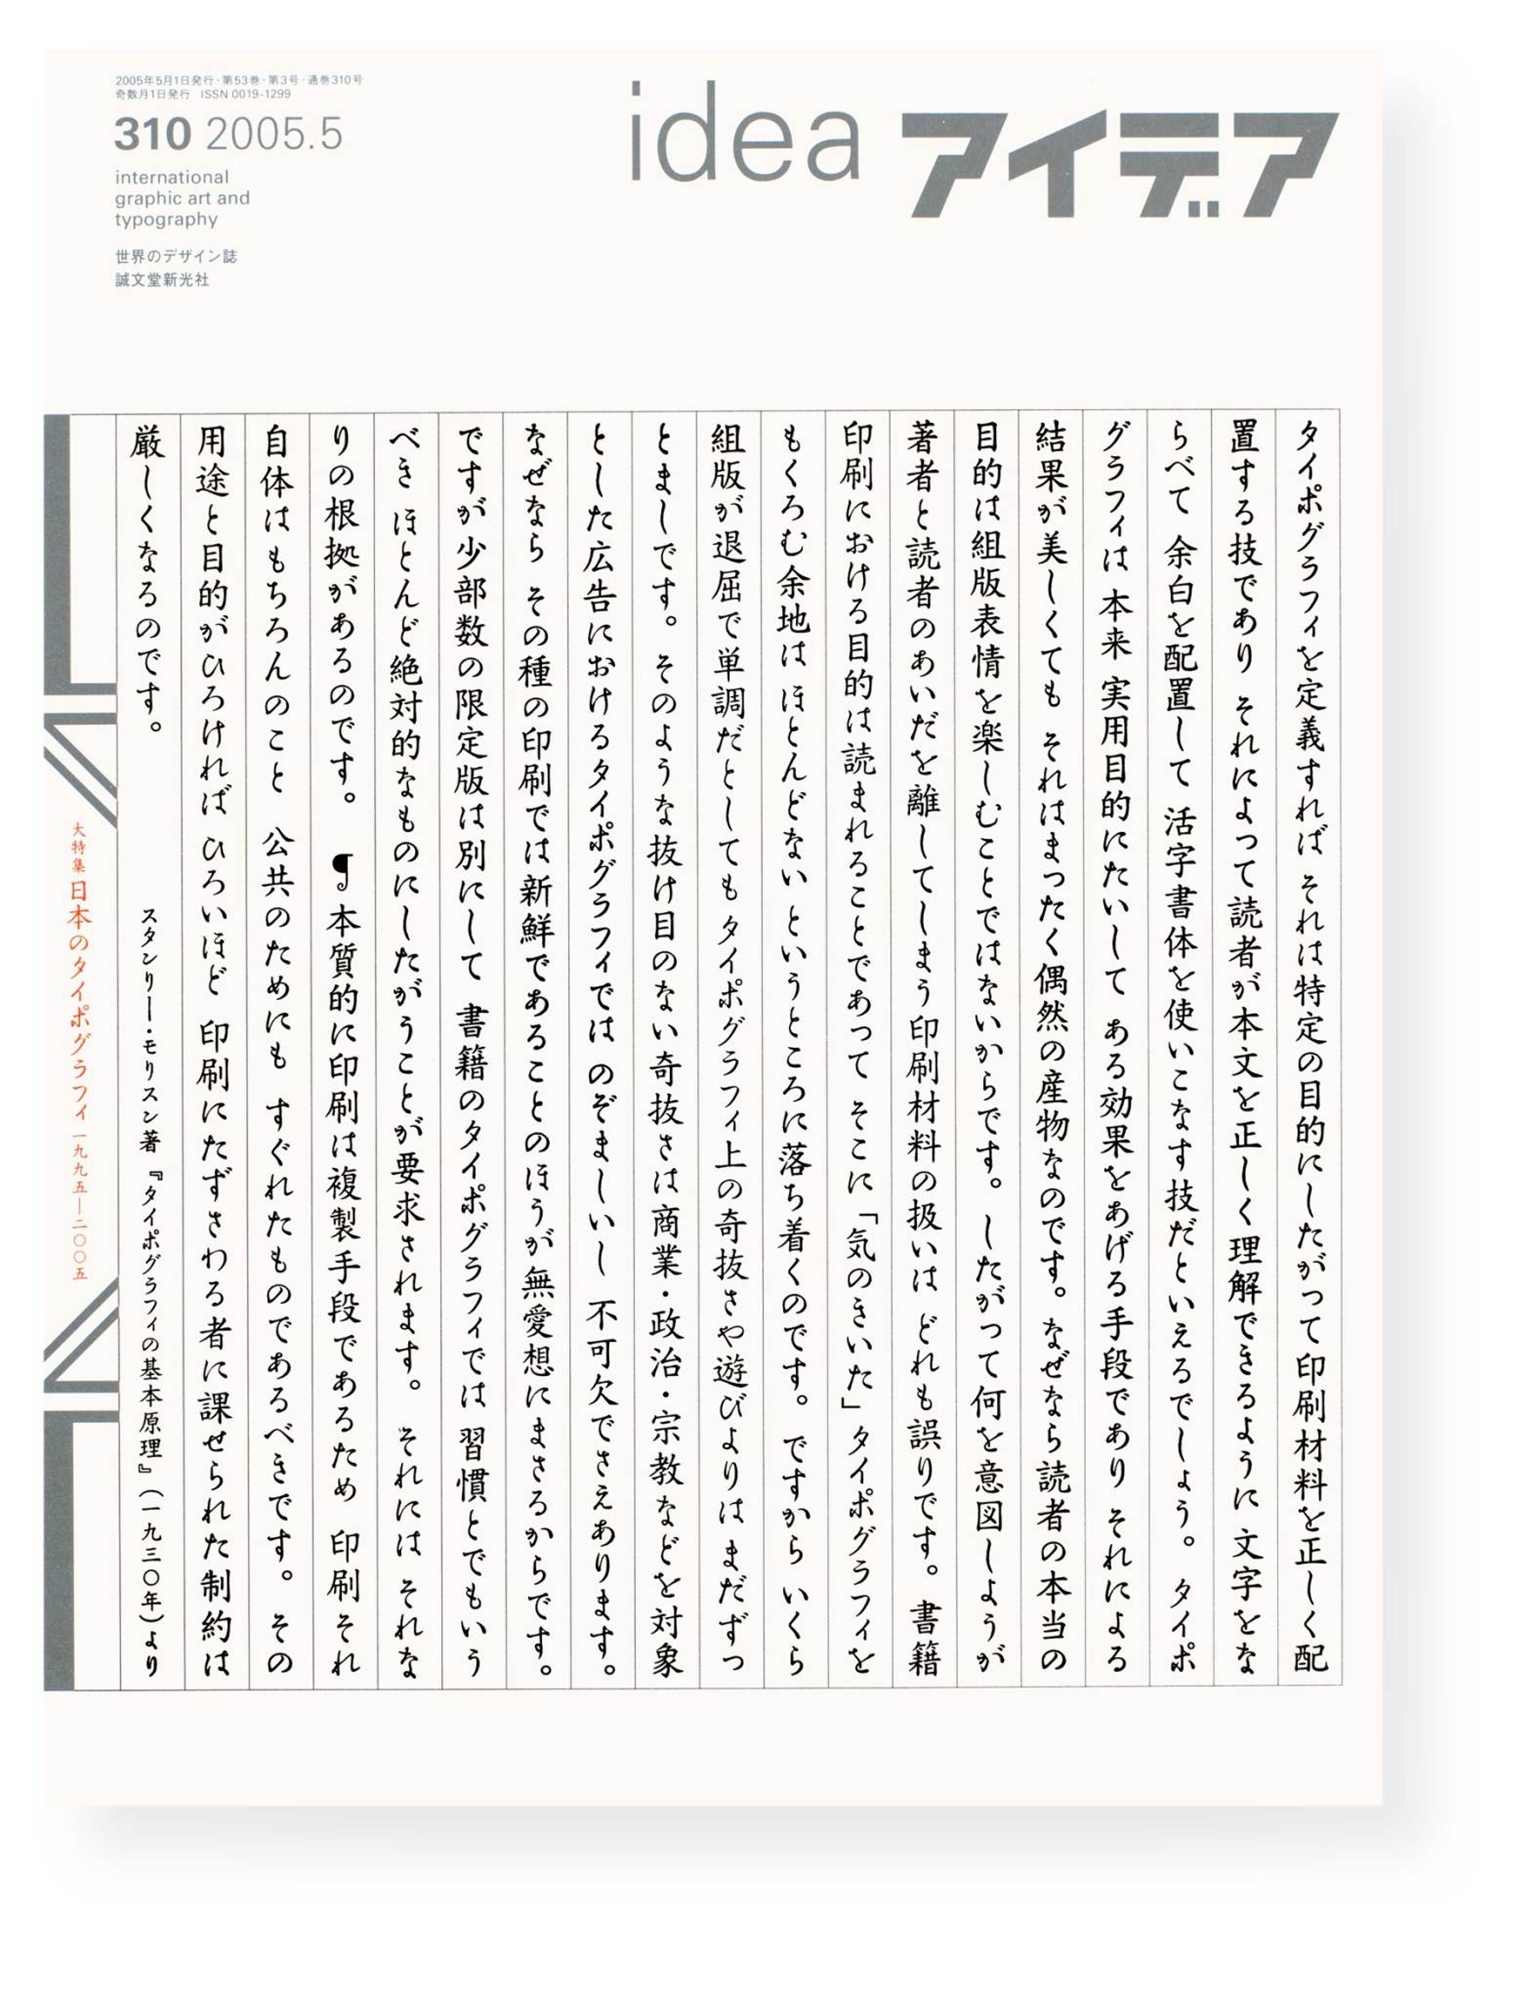 2005年5月1日発行・第53巻・第3号・通巻310号
奇数月1日発行 ISSN 0019-1299
310 2005.5
international
graphic art and
typography
世界のデザイン誌
誠文堂新光社
idea アイデア
タイポグラフィを定義すれば それは特定の目的にしたがって印刷材料を正しく配
置する技であり それによって読者が本文を正しく理解できるように 文字をな
らべて 余白を配置して 活字書体を使いこなす技だといえるでしょう。タイポ
グラフィは 本来 実用目的にたいして ある効果をあげる手段であり それによる
結果が美しくても それはまったく偶然の産物なのです。なぜなら読者の本当の
目的は組版表情を楽しむことではないからです。したがって何を意図しようが
著者と読者のあいだを離してしまう印刷材料の扱いは どれも誤りです。書籍
印刷における目的は読まれることであって そこに「気のきいた」タイポグラフィを
もくろむ余地は ほとんどない というところに落ち着くのです。ですから いくら
組版が退屈で単調だとしても タイポグラフィ上の奇抜さや遊びよりは まだずっ
とましです。そのような抜け目のない奇抜さは商業・政治・宗教などを対象
とした広告におけるタイポグラフィでは のぞましいし 不可欠でさえあります。
なぜなら その種の印刷では新鮮であることのほうが無愛想にまさるからです。
ですが少部数の限定版は別にして 書籍のタイポグラフィでは 習慣とでもいう
べき ほとんど絶対的なものにしたがうことが要求されます。それには それな
りの根拠があるのです。 ¶本質的に印刷は複製手段であるため 印刷それ
自体はもちろんのこと 公共のためにも すぐれたものであるべきです。その
用途と目的がひろければ ひろいほど 印刷にたずさわる者に課せられた制約は
厳しくなるのです。
スタンリー・モリスン著『タイポグラフィの基本原理』(一九三〇年)より
大特集 日本のタイポグラフィ 一九九五—二〇〇五